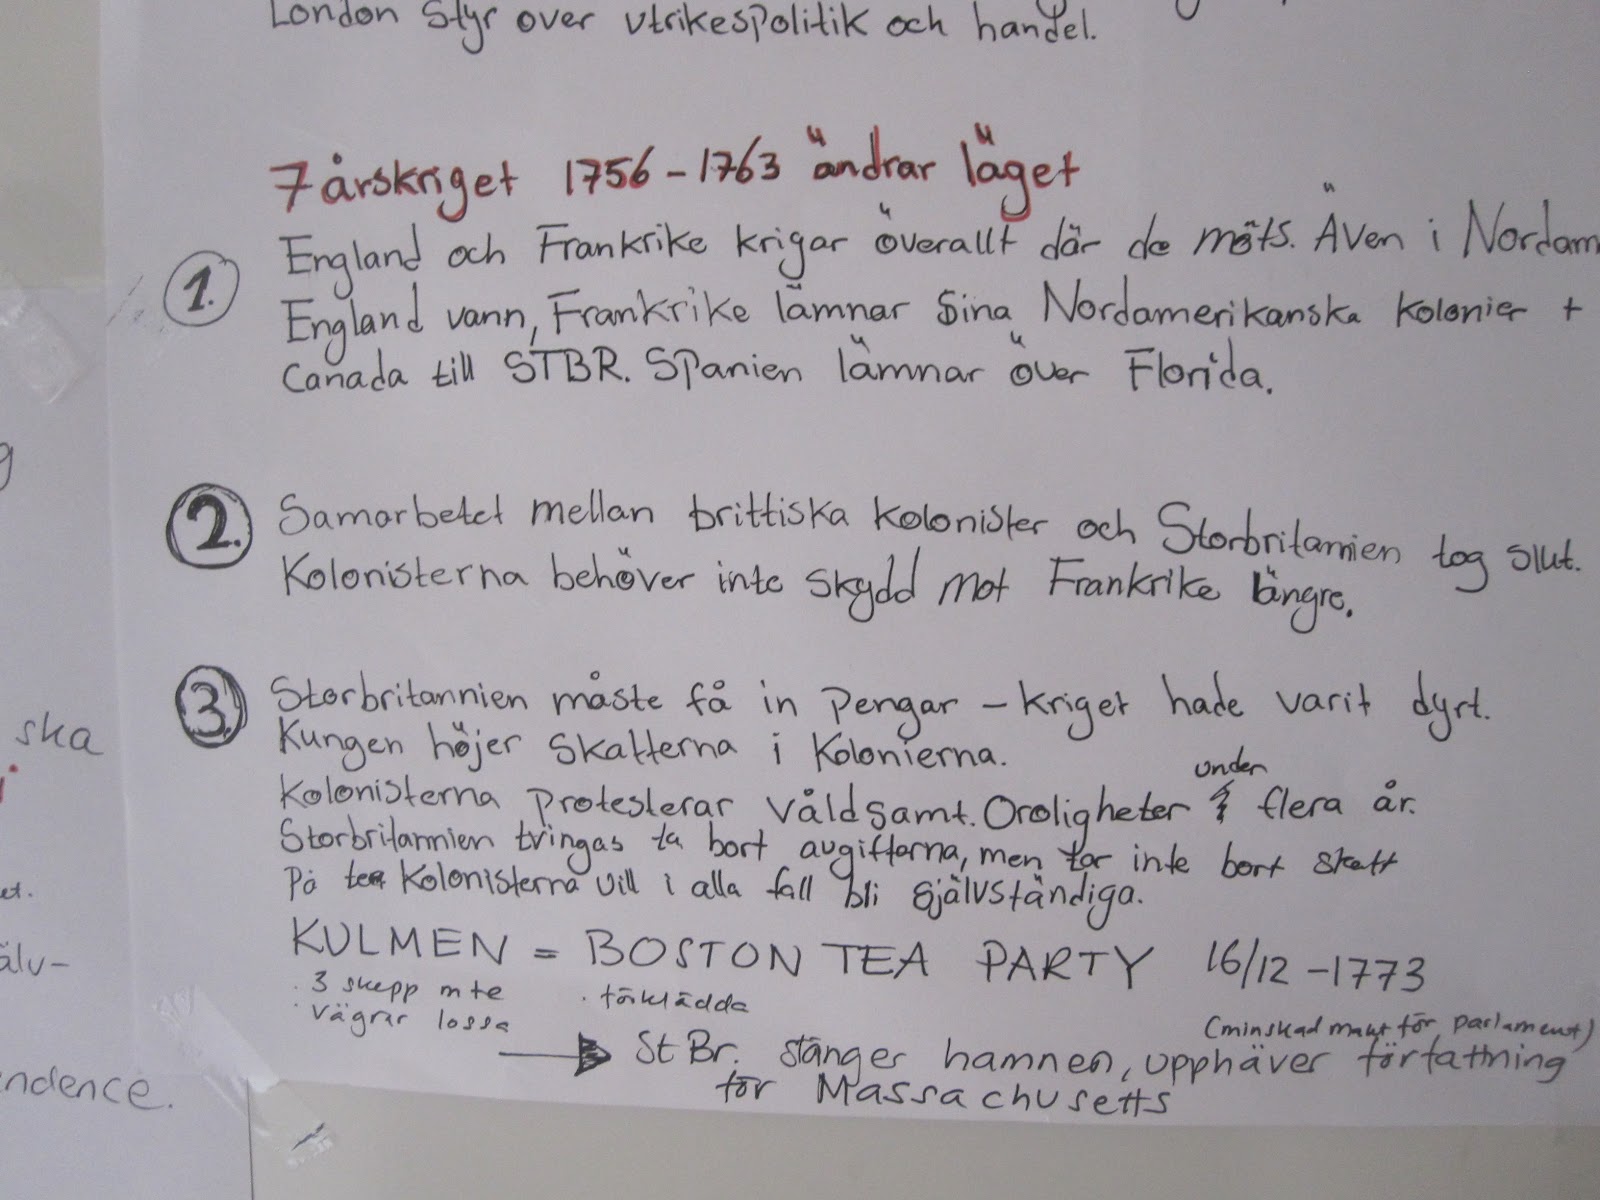 London styr över utrikespolitik och handel.
7 årskriget 1756-1763 ändrar läget
1. England och Frankrike krigar överallt där de möts. Även i Nordam
England vann, Frankrike lämnar sina Nordamerikanska kolonier +
Canada till STBR. Spanien lämnar över Florida.
2. Samarbetet mellan brittiska kolonister och Storbritannien tog slut.
Kolonisterna behöver inte skydd mot Frankrike längre.
3. Storbritannien måste få in pengar - kriget hade varit dyrt.
Kungen höjer skatterna i kolonierna.
Kolonisterna protesterar våldsamt. Oroligheter under flera år.
Storbritannien tvingas ta bort avgifterna, men tar inte bort skatt
på te. Kolonisterna vill i alla fall bli självständiga.
KULMEN = BOSTON TEA PARTY 16/12-1773
· 3 skepp m te · förklädda
· vägrar lossa
(minskad makt för parlament)
→ St Br. stänger hamnen, upphäver författning
för Massachusetts
g
ska
et.
älv-
ndence.